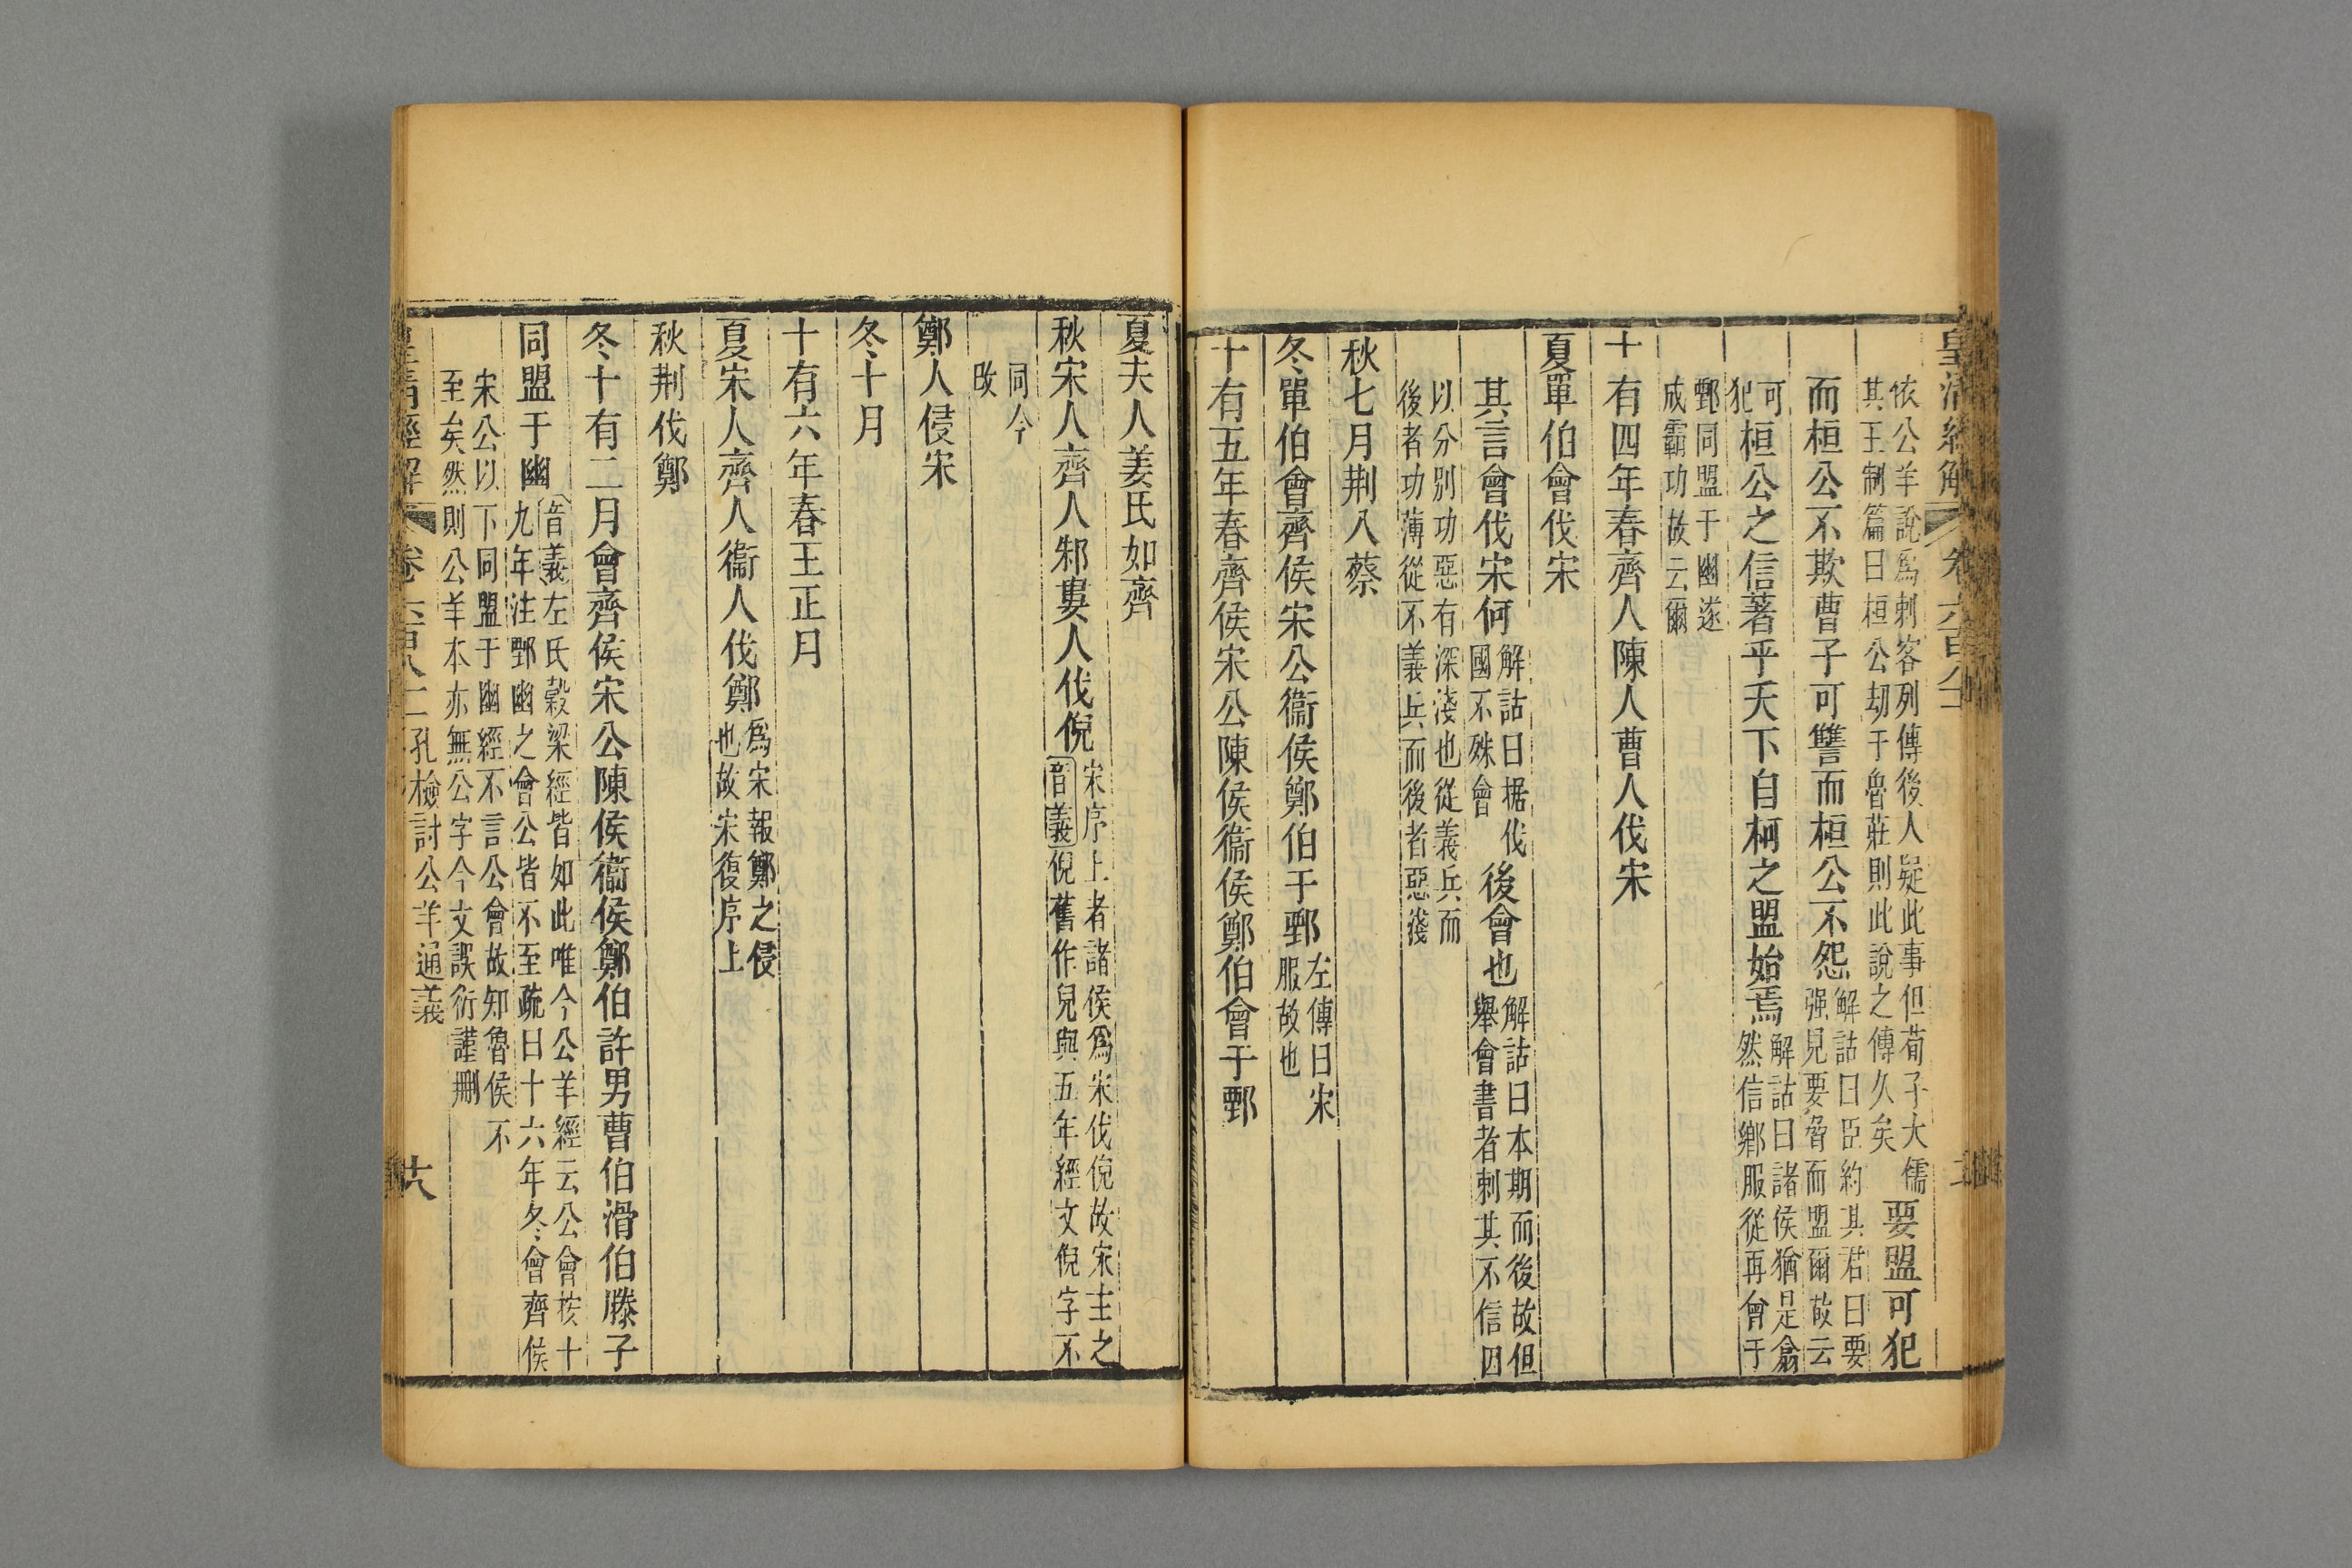 皇清經解 卷六百八十二
依公羊說爲刺客列傳後人疑此事但荀子大儒
其王制篇曰桓公劫于魯莊則此說之傳久矣
要盟可犯
而桓公不欺曹子可讐而桓公不怨
解詁曰臣約其君曰要
强見要脅而盟爾故云
可
犯
桓公之信著乎天下自柯之盟始焉
解詁曰諸侯猶是翕
然信鄉服從再會于
鄄同盟于幽遂
成霸功故云爾
十有四年春齊人陳人曹人伐宋
夏單伯會伐宋
其言會伐宋何
解詁曰据伐
國不殊會
後會也
解詁曰本期而後故但
舉會書者刺其不信因
以分別功惡有深淺也從義兵而
後者功薄從不義兵而後者惡淺
秋七月荆入蔡
冬單伯會齊侯宋公衞侯鄭伯于鄄
左傳曰宋
服故也
十有五年春齊侯宋公陳侯衞侯鄭伯會于鄄
夏夫人姜氏如齊
秋宋人齊人邾婁人伐倪
宋序上者諸侯爲宋伐倪故宋主之
音義倪舊作兒與五年經文倪字不
同今
改
鄭人侵宋
冬十月
十有六年春王正月
夏宋人齊人衞人伐鄭
爲宋報鄭之侵
也故宋復序上
秋荆伐鄭
冬十有二月會齊侯宋公陳侯衞侯鄭伯許男曹伯滑伯滕子
同盟于幽
音義左氏穀梁經皆如此唯今公羊經云公會桉十
九年注鄄幽之會公皆不至疏曰十六年冬會齊侯
宋公以下同盟于幽經不言公會故知魯侯不
至矣然則公羊本亦無公字今文誤衍謹刪
皇清經解 卷六百八十二 孔檢討公羊通義 共